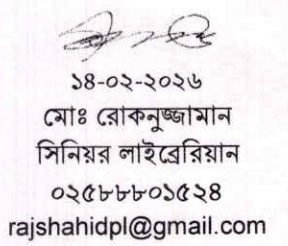 ১৪-০২-২০২৬
মোঃ রোকনুজ্জামান
সিনিয়র লাইব্রেরিয়ান
০২৫৮৮৮০১৫২৪
rajshahidpl@gmail.com